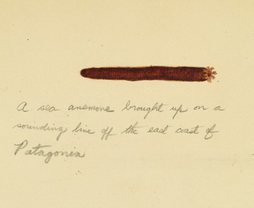 A sea anemone brought up on a
sounding line off the east coast of
Patagonia